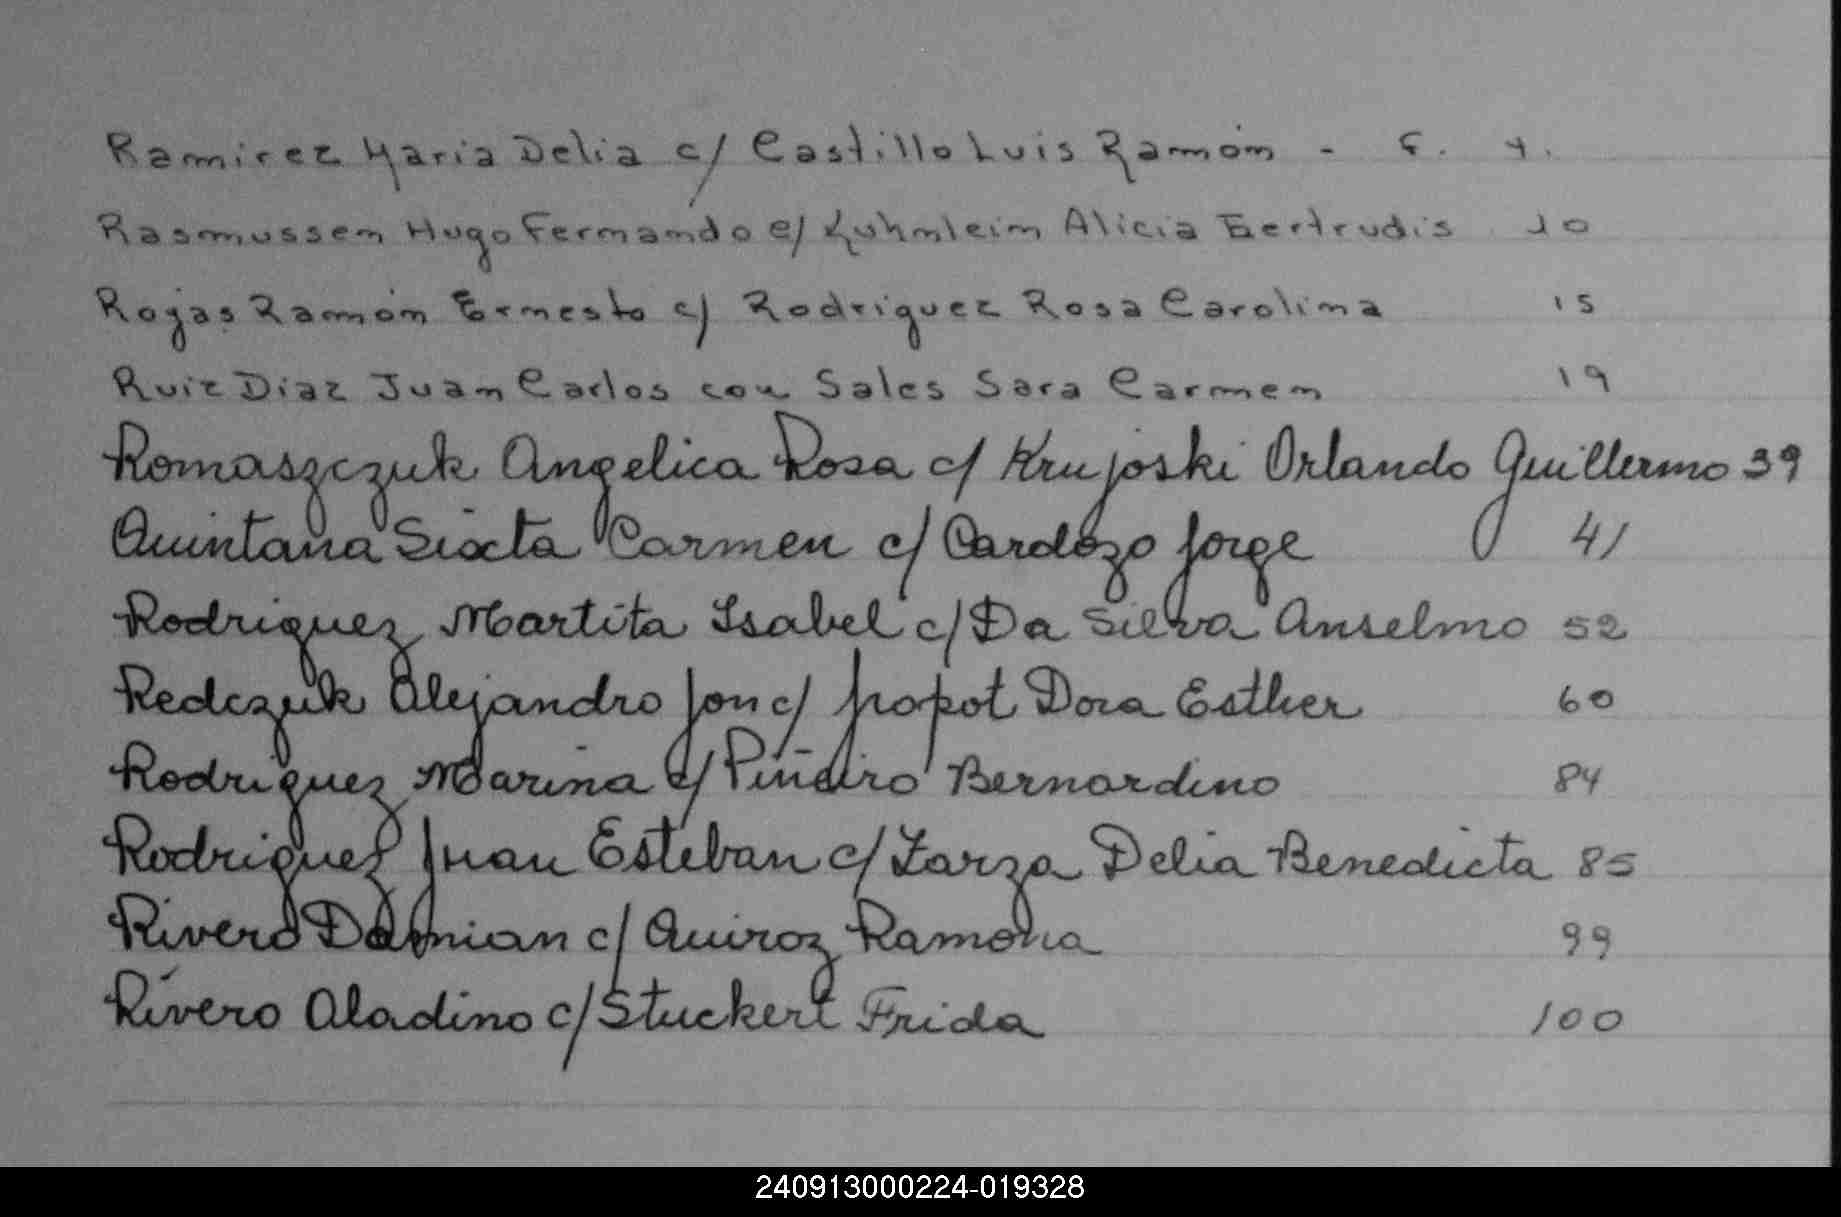 Ramirez Maria Delia c/ Castillo Luis Ramón - F. 4.
Rasmussen Hugo Fernando c/ Kuhnlein Alicia Gertrudis 10
Rojas Ramón Ernesto c/ Rodriguez Rosa Carolina 15
Ruiz Diaz Juan Carlos con Sales Sara Carmen 19
Romaszczuk Angelica Rosa c/ Krujoski Orlando Guillermo 39
Quintana Sixta Carmen c/ Cardozo Jorge 41
Rodriguez Martita Isabel c/ Da Silva Anselmo 52
Redczuk Alejandro Jon c/ Dora Esther 60
Rodriguez Marina c/ Piñeiro Bernardino 84
Rodriguez Juan Esteban c/ Zarza Delia Benedicta 85
Rivero Damian c/ Quiroz Ramona 99
Rivero Aladino c/ Stuckert Frida 100
240913000224-019328